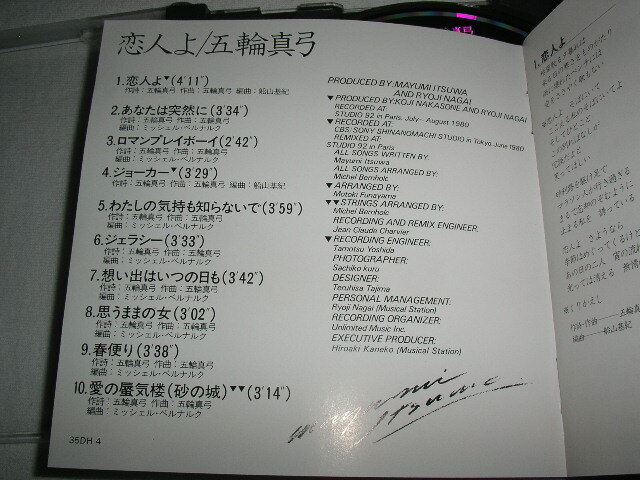 恋人よ/五輪真弓
1.恋人よ▼(4'11")
作詩:五輪真弓 作曲:五輪真弓 編曲:船山基紀
2.あなたは突然に(3'34")
作詩:五輪真弓 作曲:五輪真弓
編曲:ミッシェル・ベルナルク
3.ロマンプレイボーイ(2'42")
作詩:五輪真弓 作曲:五輪真弓
編曲:ミッシェル・ベルナルク
4.ジョーカー▼(3'29")
作詩:五輪真弓 作曲:五輪真弓 編曲:船山基紀
5.わたしの気持も知らないで(3'59")
作詩:五輪真弓 作曲:五輪真弓
編曲:ミッシェル・ベルナルク
6.ジェラシー(3'33")
作詩:五輪真弓 作曲:五輪真弓
編曲:ミッシェル・ベルナルク
7.想い出はいつの日も(3'42")
作詩:五輪真弓 作曲:五輪真弓
編曲:ミッシェル・ベルナルク
8.思うままの女(3'02")
作詩:五輪真弓 作曲:五輪真弓
編曲:ミッシェル・ベルナルク
9.春便り(3'38")
作詩:五輪真弓 作曲:五輪真弓
編曲:ミッシェル・ベルナルク
10.愛の蜃気楼(砂の城)▼▼(3'14")
作詩:五輪真弓 作曲:五輪真弓
編曲:ミッシェル・ベルナルク
35DH 4
PRODUCED BY:MAYUMI ITSUWA
AND RYOJI NAGAI
▼PRODUCED BY:KOJI NAKASONE AND RYOJI NAGAI
RECORDED AT:
STUDIO 92 in Paris. July–August 1980
▼RECORDED AT:
CBS/SONY SHINANOMACHI STUDIO in Tokyo June 1980
REMIXED AT:
STUDIO 92 in Paris
ALL SONGS WRITTEN BY:
Mayumi Itsuwa
ALL SONGS ARRANGED BY:
Michel Bernholc
▼ARRANGED BY:
Motoki Funayama
▼▼STRINGS ARRANGED BY:
Michel Bernholc
RECORDING AND REMIX ENGINEER:
Jean Claude Charvier
▼RECORDING ENGINEER:
Tamotsu Yoshida
PHOTOGRAPHER:
Sachiko Kuru
DESIGNER:
Teruhisa Tajima
PERSONAL MANAGEMENT:
Ryoji Nagai (Musical Station)
RECORDING ORGANIZER:
Unlimited Music Inc.
EXECUTIVE PRODUCER:
Hiroaki Kaneko (Musical Station)
mayumi
Itsuwa
1.恋人よ
恋人よ そばにいて
恋人よ さようなら
あの日の二人 宵の流れ星
光っては消える 無情の
※くりかえし
作詩・作曲――五輪真弓
編曲――船山基紀